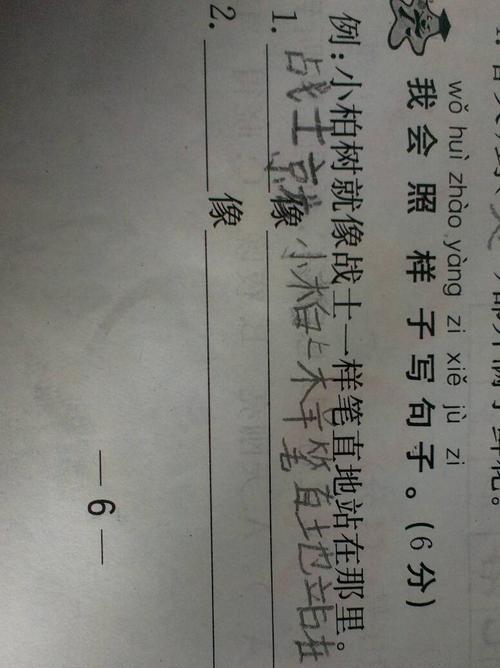 wǒ huì zhào yàng zi xiě jù zi
我会照样子写句子。(6分)
例:小柏树就像战士一样笔直地站在那里。
1. 战士就像小柏一样笔直地站在
2. 像
— 6 —